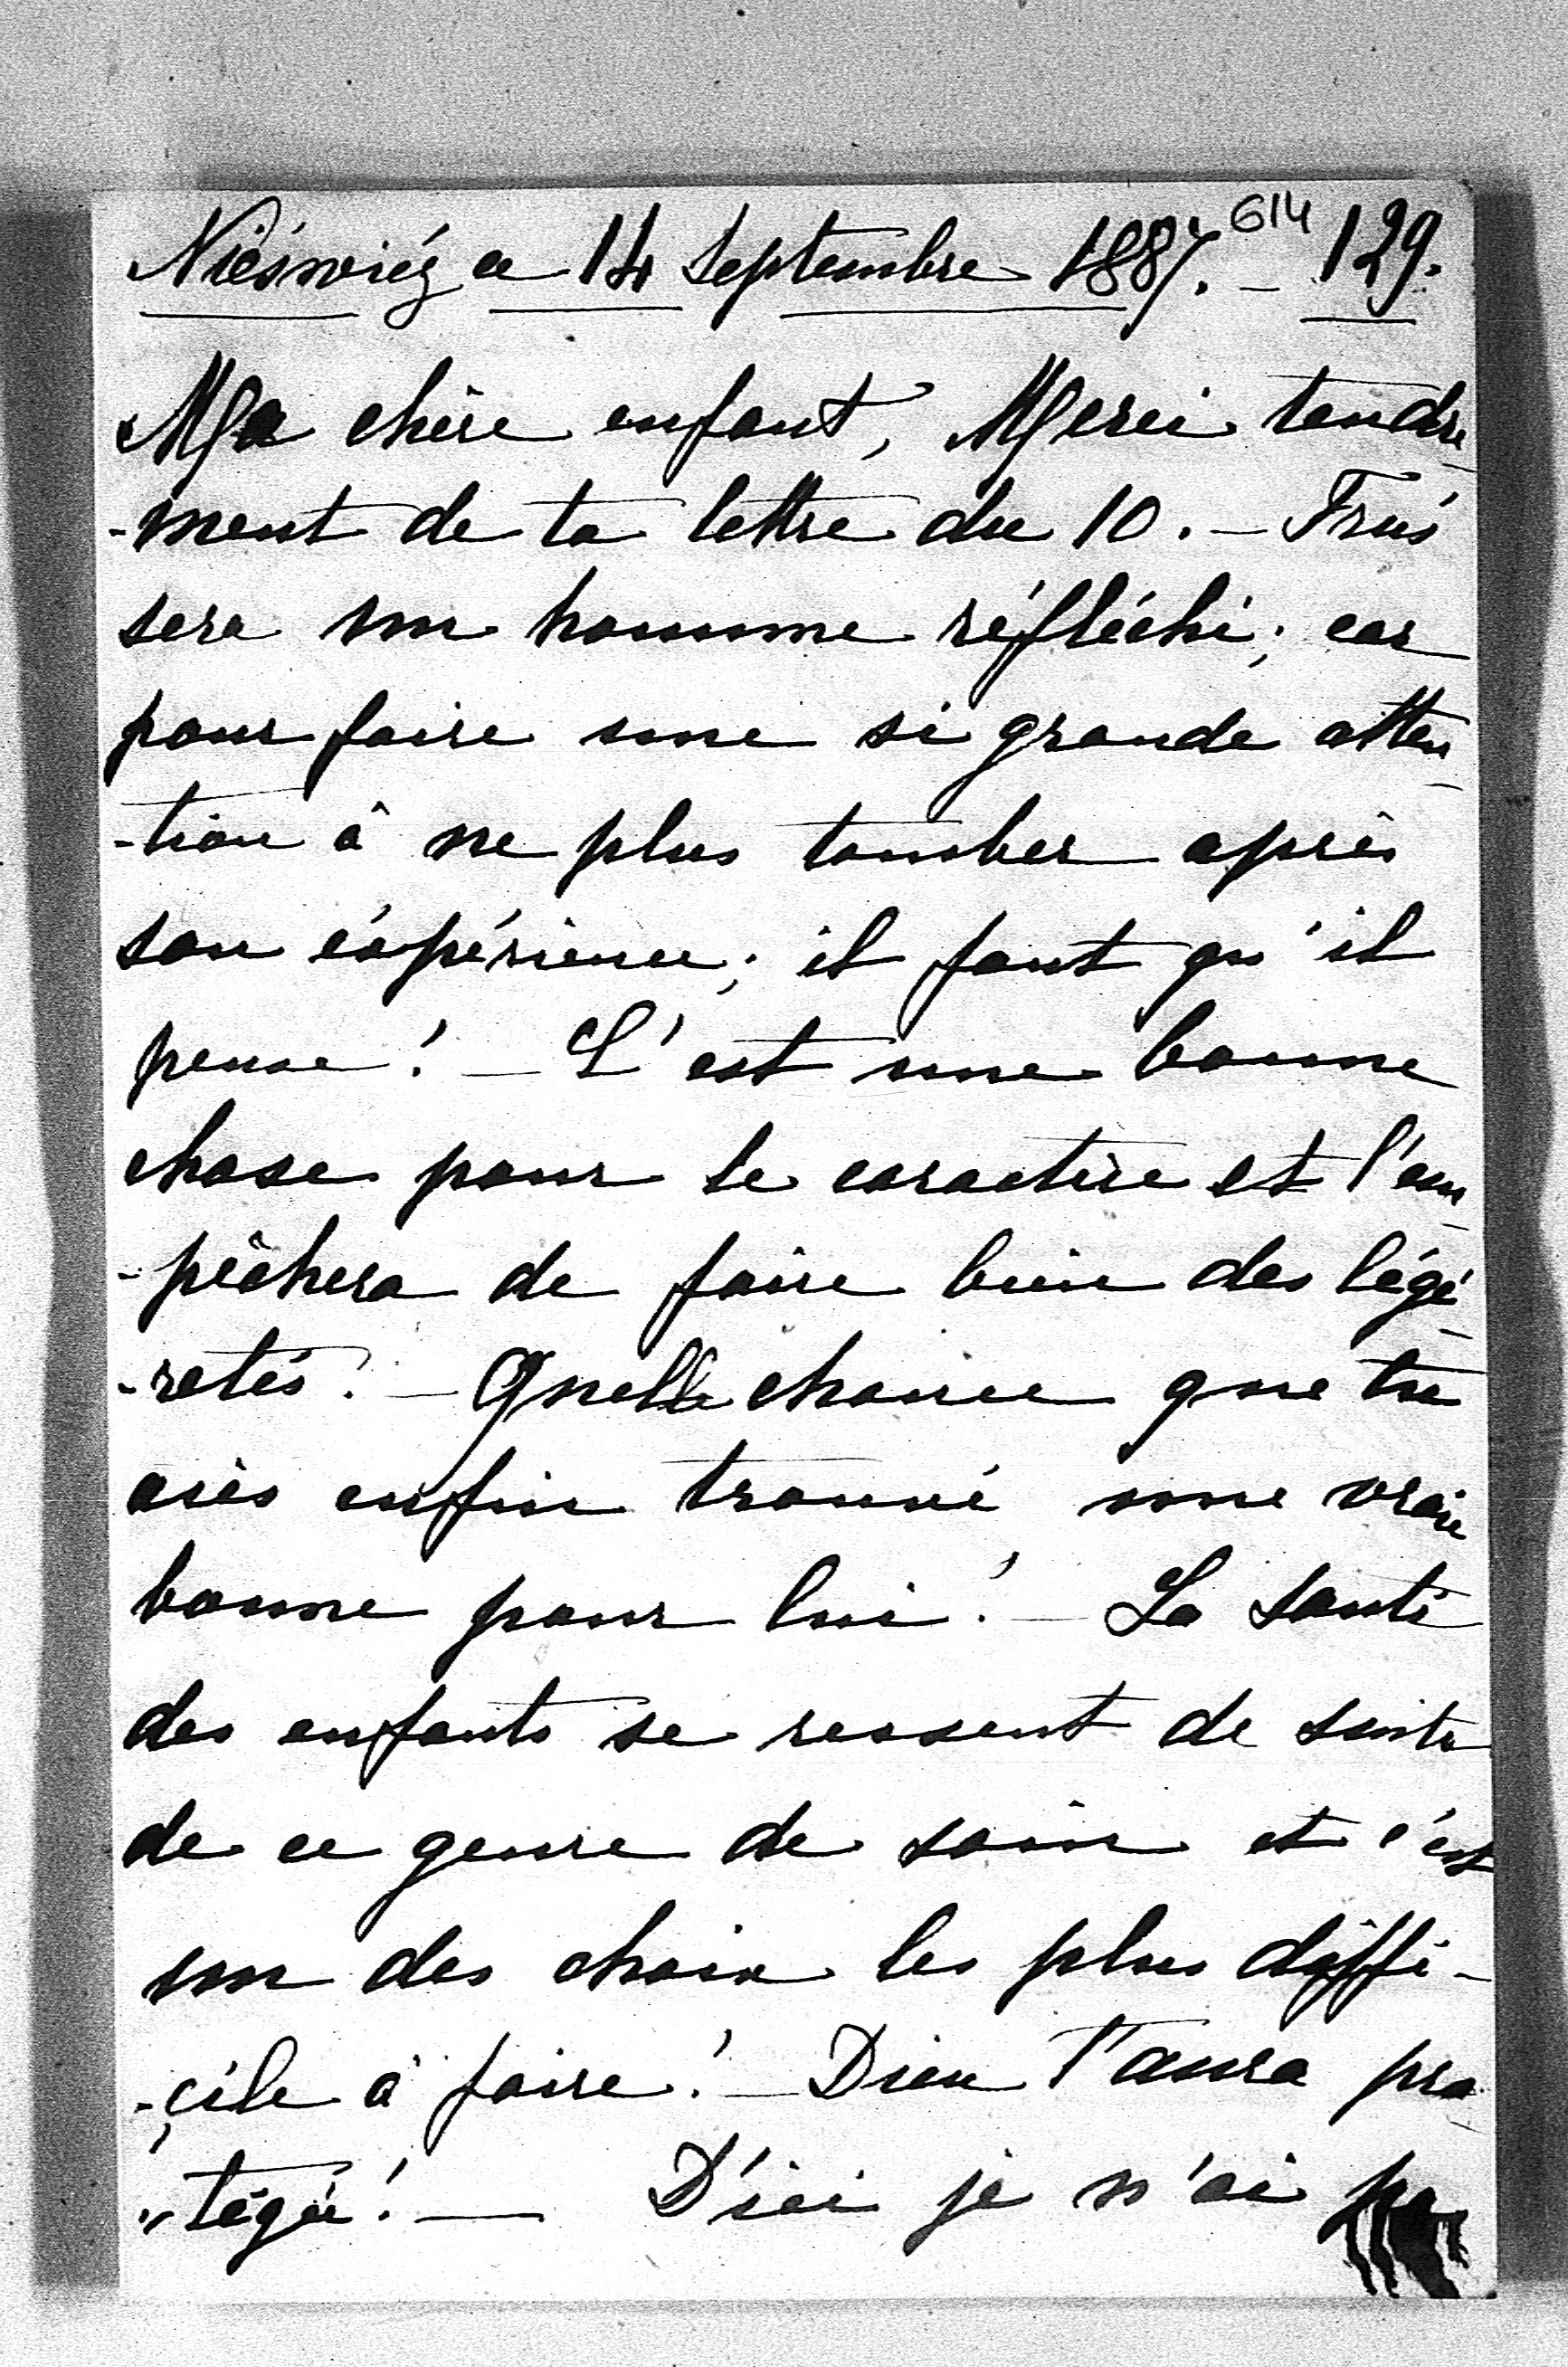 Niéświéz ce 14 Septembre 1887. – 614 129.
Ma chère enfant, Merci tendre
-ment de ta lettre du 10. – Truś
sera un homme réfléchi; car
pour faire une si grande atten
-tion à ne plus tomber après
son éxpérience; il faut qu'il
pense! – C'est une bonne
chose pour le caractère et l'em
-pêchera de faire bien des légè
-retés. – Quelle chance que tu
aiès enfin trouvé une vraie
bonne pour lui! – La santé
des enfants se ressent de suite
de ce genre de soin et c'est
un des choix les plus diffi-
-çile à faire! – Dieu t'aura pro
"tégée! – D'ici je n'ai